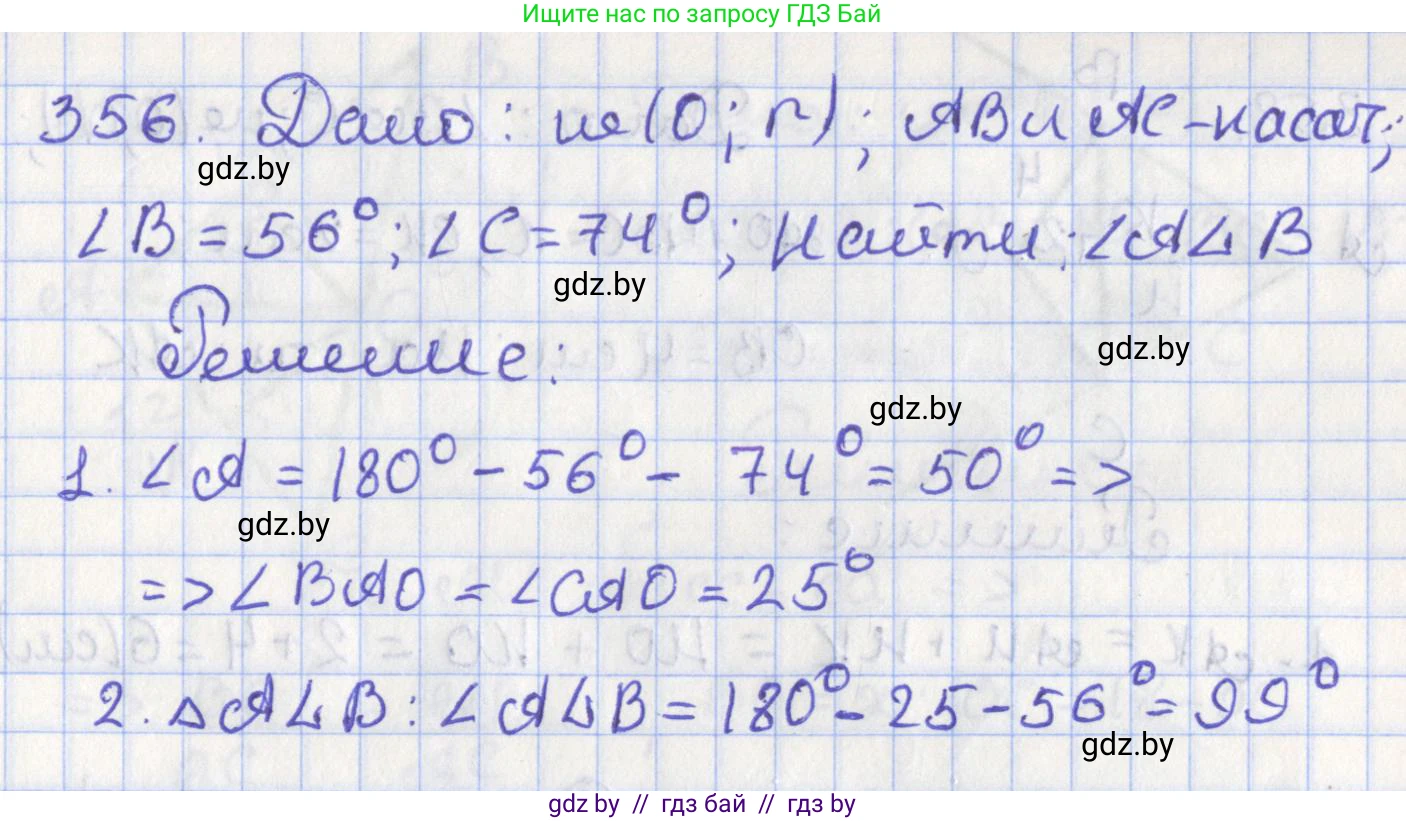 Ищите нас по запросу ГДЗ Бай
356. Дано: w(O; r); AB и AC - касат;
gdz.by
∠B = 56°; ∠C = 74°; Найти: ∠ALB
gdz.by
Решение:
gdz.by
gdz.by
1. ∠A = 180° - 56° - 74° = 50° =>
gdz.by
=> ∠BAO = ∠CAO = 25°
2. ▵ALB: ∠ALB = 180° - 25 - 56° = 99°
gdz.by
gdz by // гдз бай // гдз by